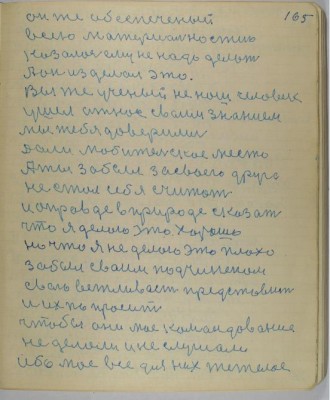 165
он же обеспеченый
всею материальностию
казалос ему не надо делат
А он изделал это.
Вы же ученый не наш человек
ушел от нас своим знанием
мы тебя доверили
дали любительское место
А ты забыл за своего друга
не стал себя считат
и оправде в природе сказат
что я делаю это хорошо
но что я не делаю это плохо
забыл своим подчиненом
свою вежливаст представит
и их по просит
чтобы они мое командование
не делали и не слушали
ибо мое все для них тежелое